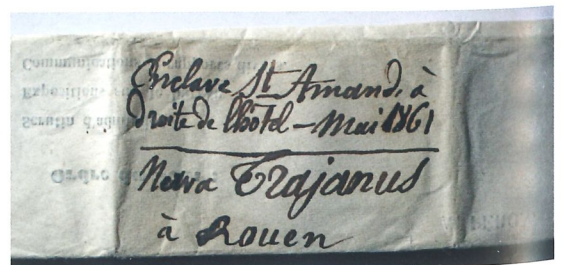 Enclave St Amand, à
droite de lhôtel - Mai 1861
Nerva Trajanus
à Rouen